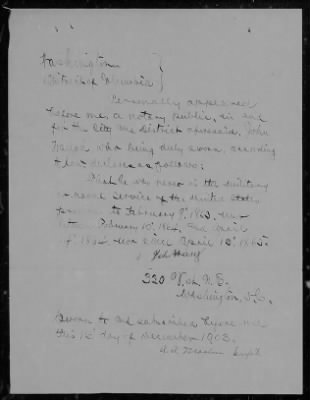 Washington
District of Columbia }
Personally appeared
before me, a notary public, in and
for the City and District aforesaid, John
who being duly sworn, according
to law declares as follows:
That he was never in the military
or naval service of the United States
prior to February 9" 1863, nor
between February 10" 1864, and April
1864, nor since April 12" 1865.
John
320 St. N. E.
Washington, D.C.
Sworn to and subscribed before me
this 12 day of December 1903.